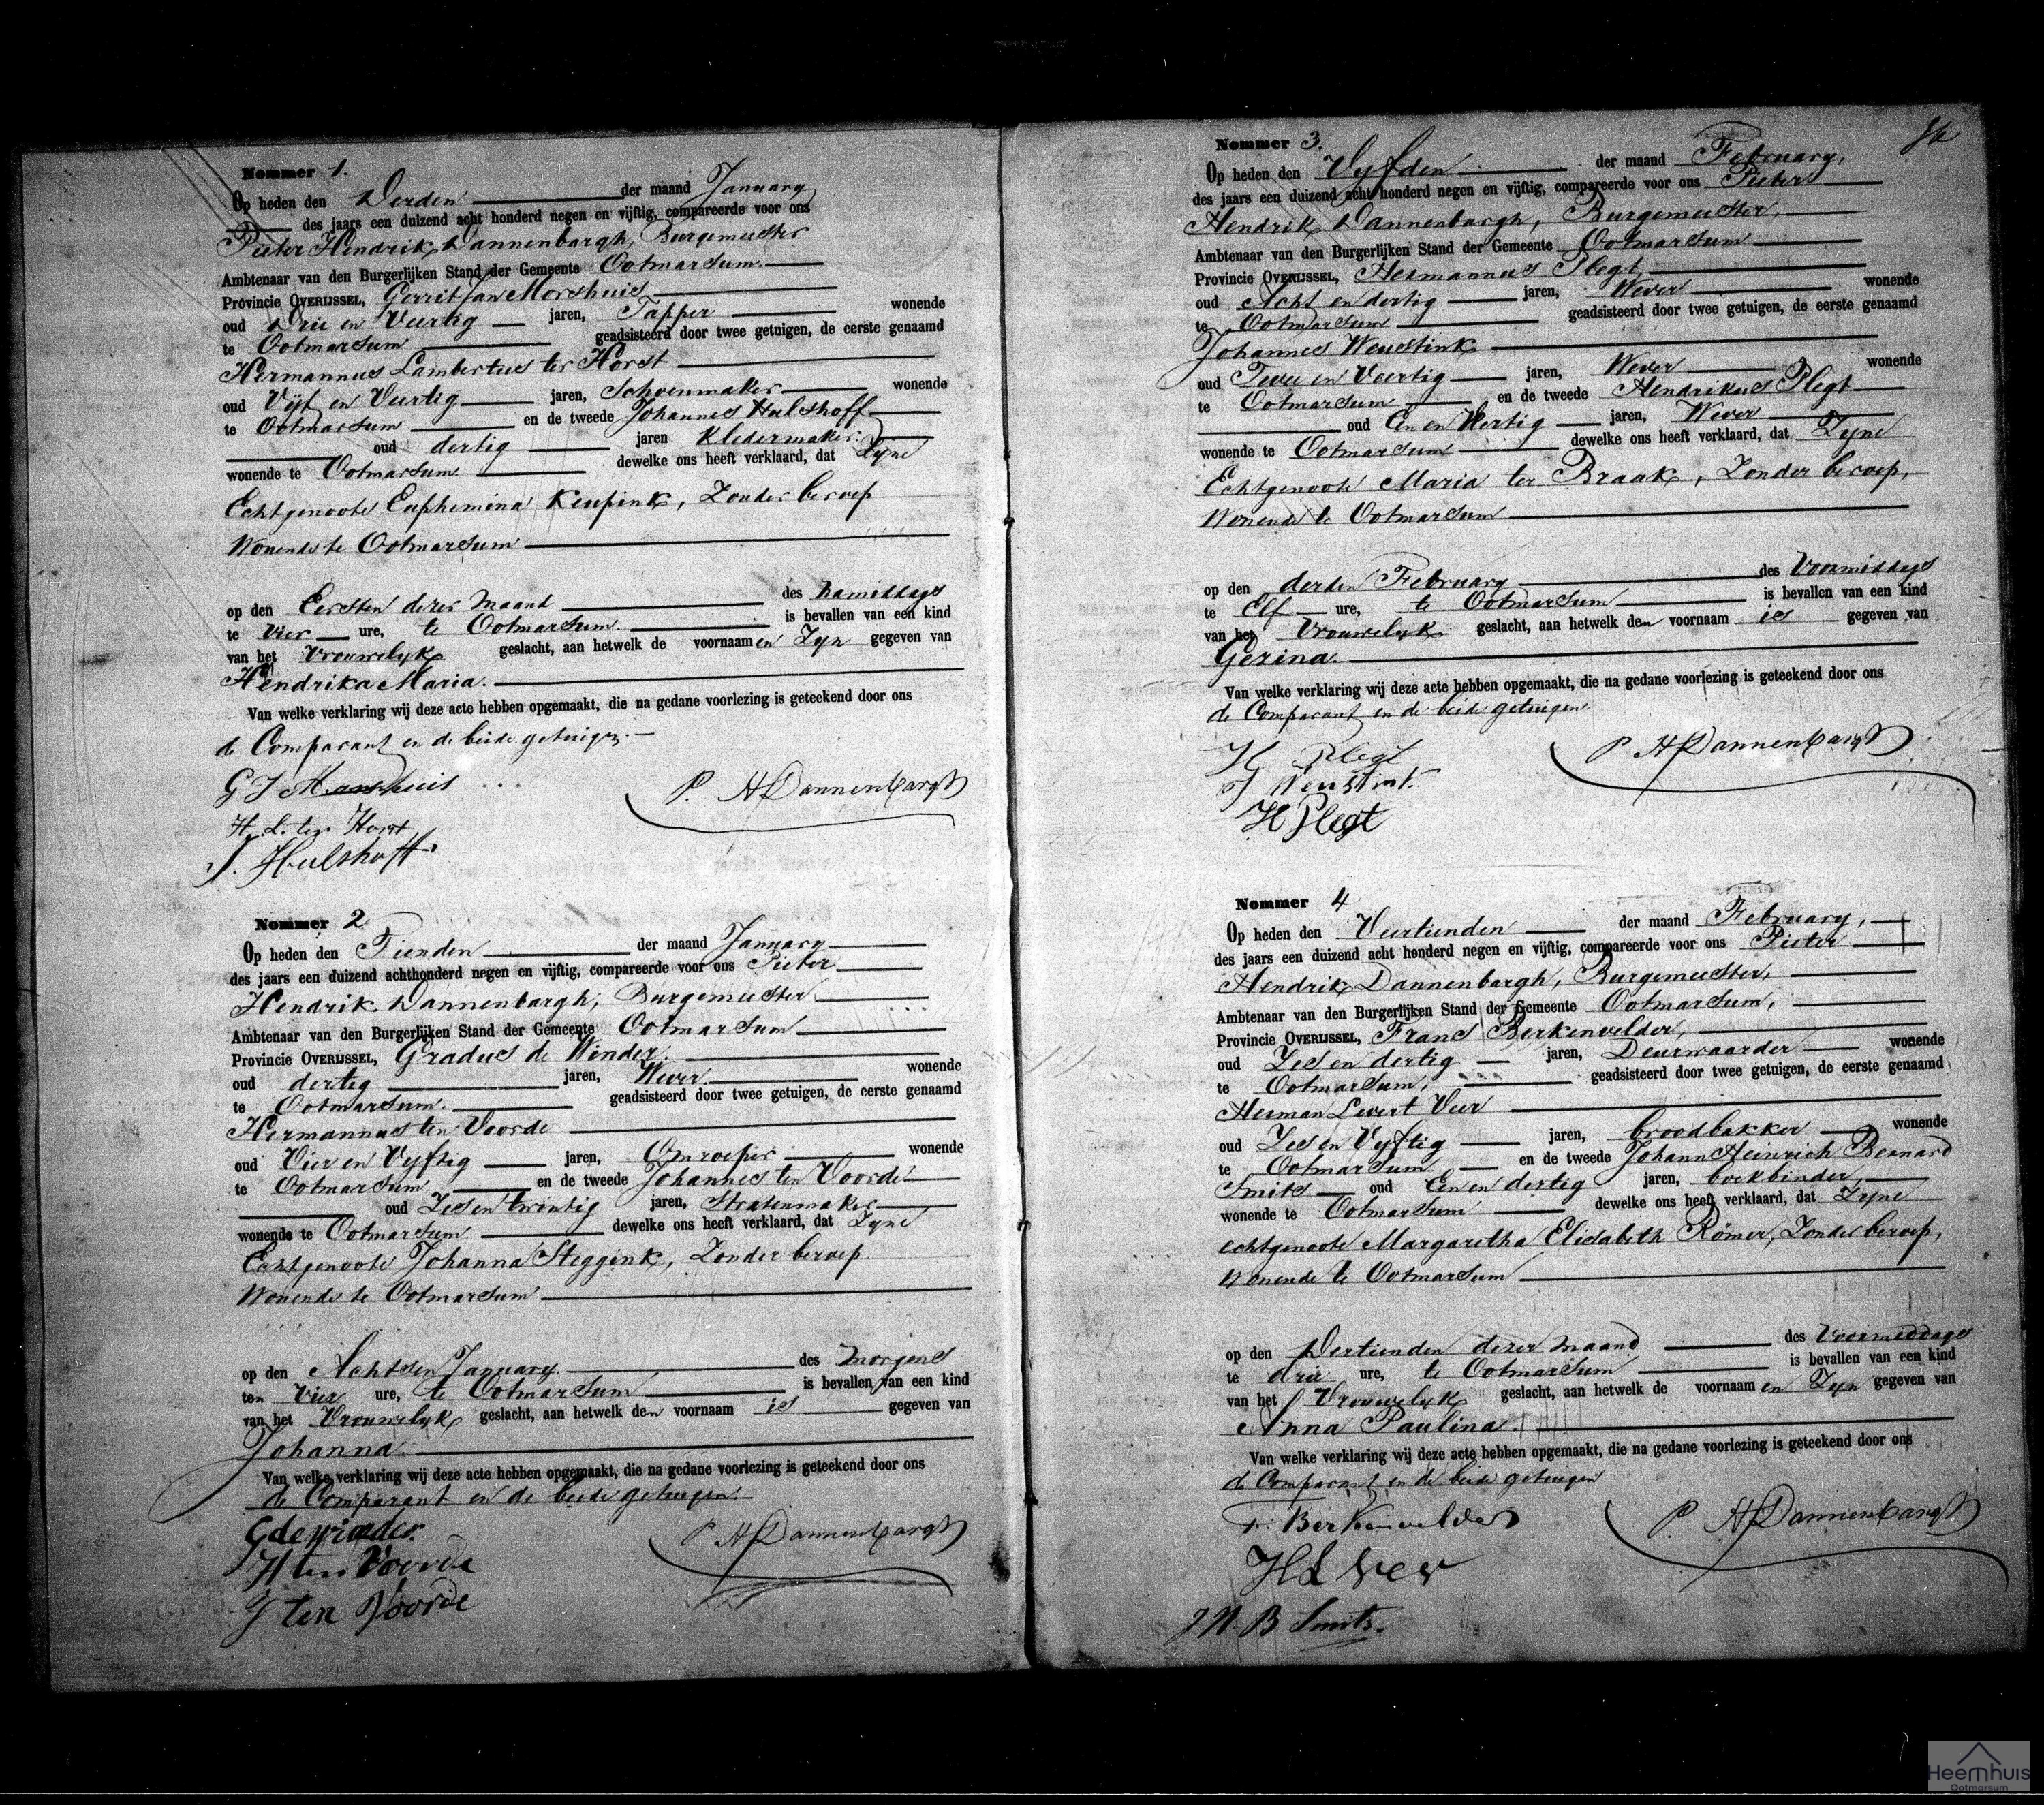 Nommer 1.
Op heden den Derden der maand January
des jaars een duizend acht honderd negen en vijftig, compareerde voor ons
Pieter Hendrik Dannenbargh, Burgemeester
Ambtenaar van den Burgerlijken Stand der Gemeente Ootmarsum.
Provincie OVERIJSSEL, Gerrit Jan Morshuis
oud Drie en Veertig jaren, Tapper wonende
te Ootmarsum geadsisteerd door twee getuigen, de eerste genaamd
Hermannus Lambertus ter Horst
oud Vijf en Veertig jaren, Schoenmaker wonende
te Ootmarsum en de tweede Johannes Hulshoff
oud dertig jaren Kledermaker.
wonende te Ootmarsum dewelke ons heeft verklaard, dat Zyne
Echtgenoote Euphemina Keupink, Zonder beroep
Wonende te Ootmarsum
op den Eersten dezer maand des namiddags
te Vier ure, te Ootmarsum. is bevallen van een kind
van het Vrouwelyk geslacht, aan hetwelk de voornaamen Zyn gegeven van
Hendrika Maria.
Van welke verklaring wij deze acte hebben opgemaakt, die na gedane voorlezing is geteekend door ons
de Comparant en de beide getuigen.
G J Morshuis P. H Dannenbargh
H. L. ter Horst
J. Hulshoff
Nommer 2
Op heden den Tienden der maand January
des jaars een duizend achthonderd negen en vijftig, compareerde voor ons Pieter
Hendrik Dannenbargh, Burgemeester
Ambtenaar van den Burgerlijken Stand der Gemeente Ootmarsum
Provincie OVERIJSSEL, Gradus de Winder.
oud dertig jaren, Wever wonende
te Ootmarsum. geadsisteerd door twee getuigen, de eerste genaamd
Hermannus ten Voorde
oud Vier en Vyftig jaren, Omroeper wonende
te Ootmarsum en de tweede Johannes ten Voorde
oud Zes en twintig jaren, Stratenmaker
wonende te Ootmarsum dewelke ons heeft verklaard, dat Zyne
Echtgenoote Johanna Steggink, Zonder beroep
Wonende te Ootmarsum
op den Achtsten January. des morgens
ten Vier ure, te Ootmarsum is bevallen van een kind
van het Vrouwelyk geslacht, aan hetwelk den voornaam is gegeven van
Johanna.
Van welke verklaring wij deze acte hebben opgemaakt, die na gedane voorlezing is geteekend door ons
de Comparant en de beide getuigen.
G de Winder P. H Dannenbargh
H ten Voorde
J ten Voorde
Nommer 3.
Op heden den Vyfden der maand February,
des jaars een duizend acht honderd negen en vijftig, compareerde voor ons Pieter
Hendrik Dannenbargh, Burgemeester,
Ambtenaar van den Burgerlijken Stand der Gemeente Ootmarsum
Provincie OVERIJSSEL, Hermannus Plegt,
oud Acht en dertig jaren, Wever wonende
te Ootmarsum geadsisteerd door twee getuigen, de eerste genaamd
Johannes Weustink
oud Twee en Veertig jaren, Wever wonende
te Ootmarsum en de tweede Hendrikus Plegt
oud Een en Veertig jaren, Wever
wonende te Ootmarsum dewelke ons heeft verklaard, dat Zyne
Echtgenoote Maria ter Braak, Zonder beroep,
Wonende te Ootmarsum
op den derden February des Voormiddags
te Elf ure, te Ootmarsum is bevallen van een kind
van het Vrouwelyk geslacht, aan hetwelk den voornaam is gegeven van
Gezina.
Van welke verklaring wij deze acte hebben opgemaakt, die na gedane voorlezing is geteekend door ons
de Comparant en de beide getuigen.
H Plegt P H Dannenbargh
J Weustink
H Plegt
Nommer 4
Op heden den Veertienden der maand February,
des jaars een duizend acht honderd negen en vijftig, compareerde voor ons Pieter
Hendrik Dannenbargh, Burgemeester,
Ambtenaar van den Burgerlijken Stand der Gemeente Ootmarsum,
Provincie OVERIJSSEL, Frans Berkenvelder,
oud Zes en dertig jaren, Deurwaarder wonende
te Ootmarsum, geadsisteerd door twee getuigen, de eerste genaamd
Herman Levert Veer
oud Zes en Vyftig jaren, broodbakker wonende
te Ootmarsum en de tweede Johann Heinrich Bernard
Smits oud Een en dertig jaren, boekbinder,
wonende te Ootmarsum dewelke ons heeft verklaard, dat Zyne
echtgenoote Margaretha Elisabeth Römer, Zonder beroep,
Wonende te Ootmarsum
op den Dertienden dezer maand des Voormiddags
te drie ure, te Ootmarsum is bevallen van een kind
van het Vrouwelyk geslacht, aan hetwelk de voornaamen Zyn gegeven van
Anna Paulina.
Van welke verklaring wij deze acte hebben opgemaakt, die na gedane voorlezing is geteekend door ons
de Comparant en de beide getuigen
F. Berkenvelder P. H Dannenbargh
H L Veer
J. H. B Smits.
Heemhuis
Ootmarsum